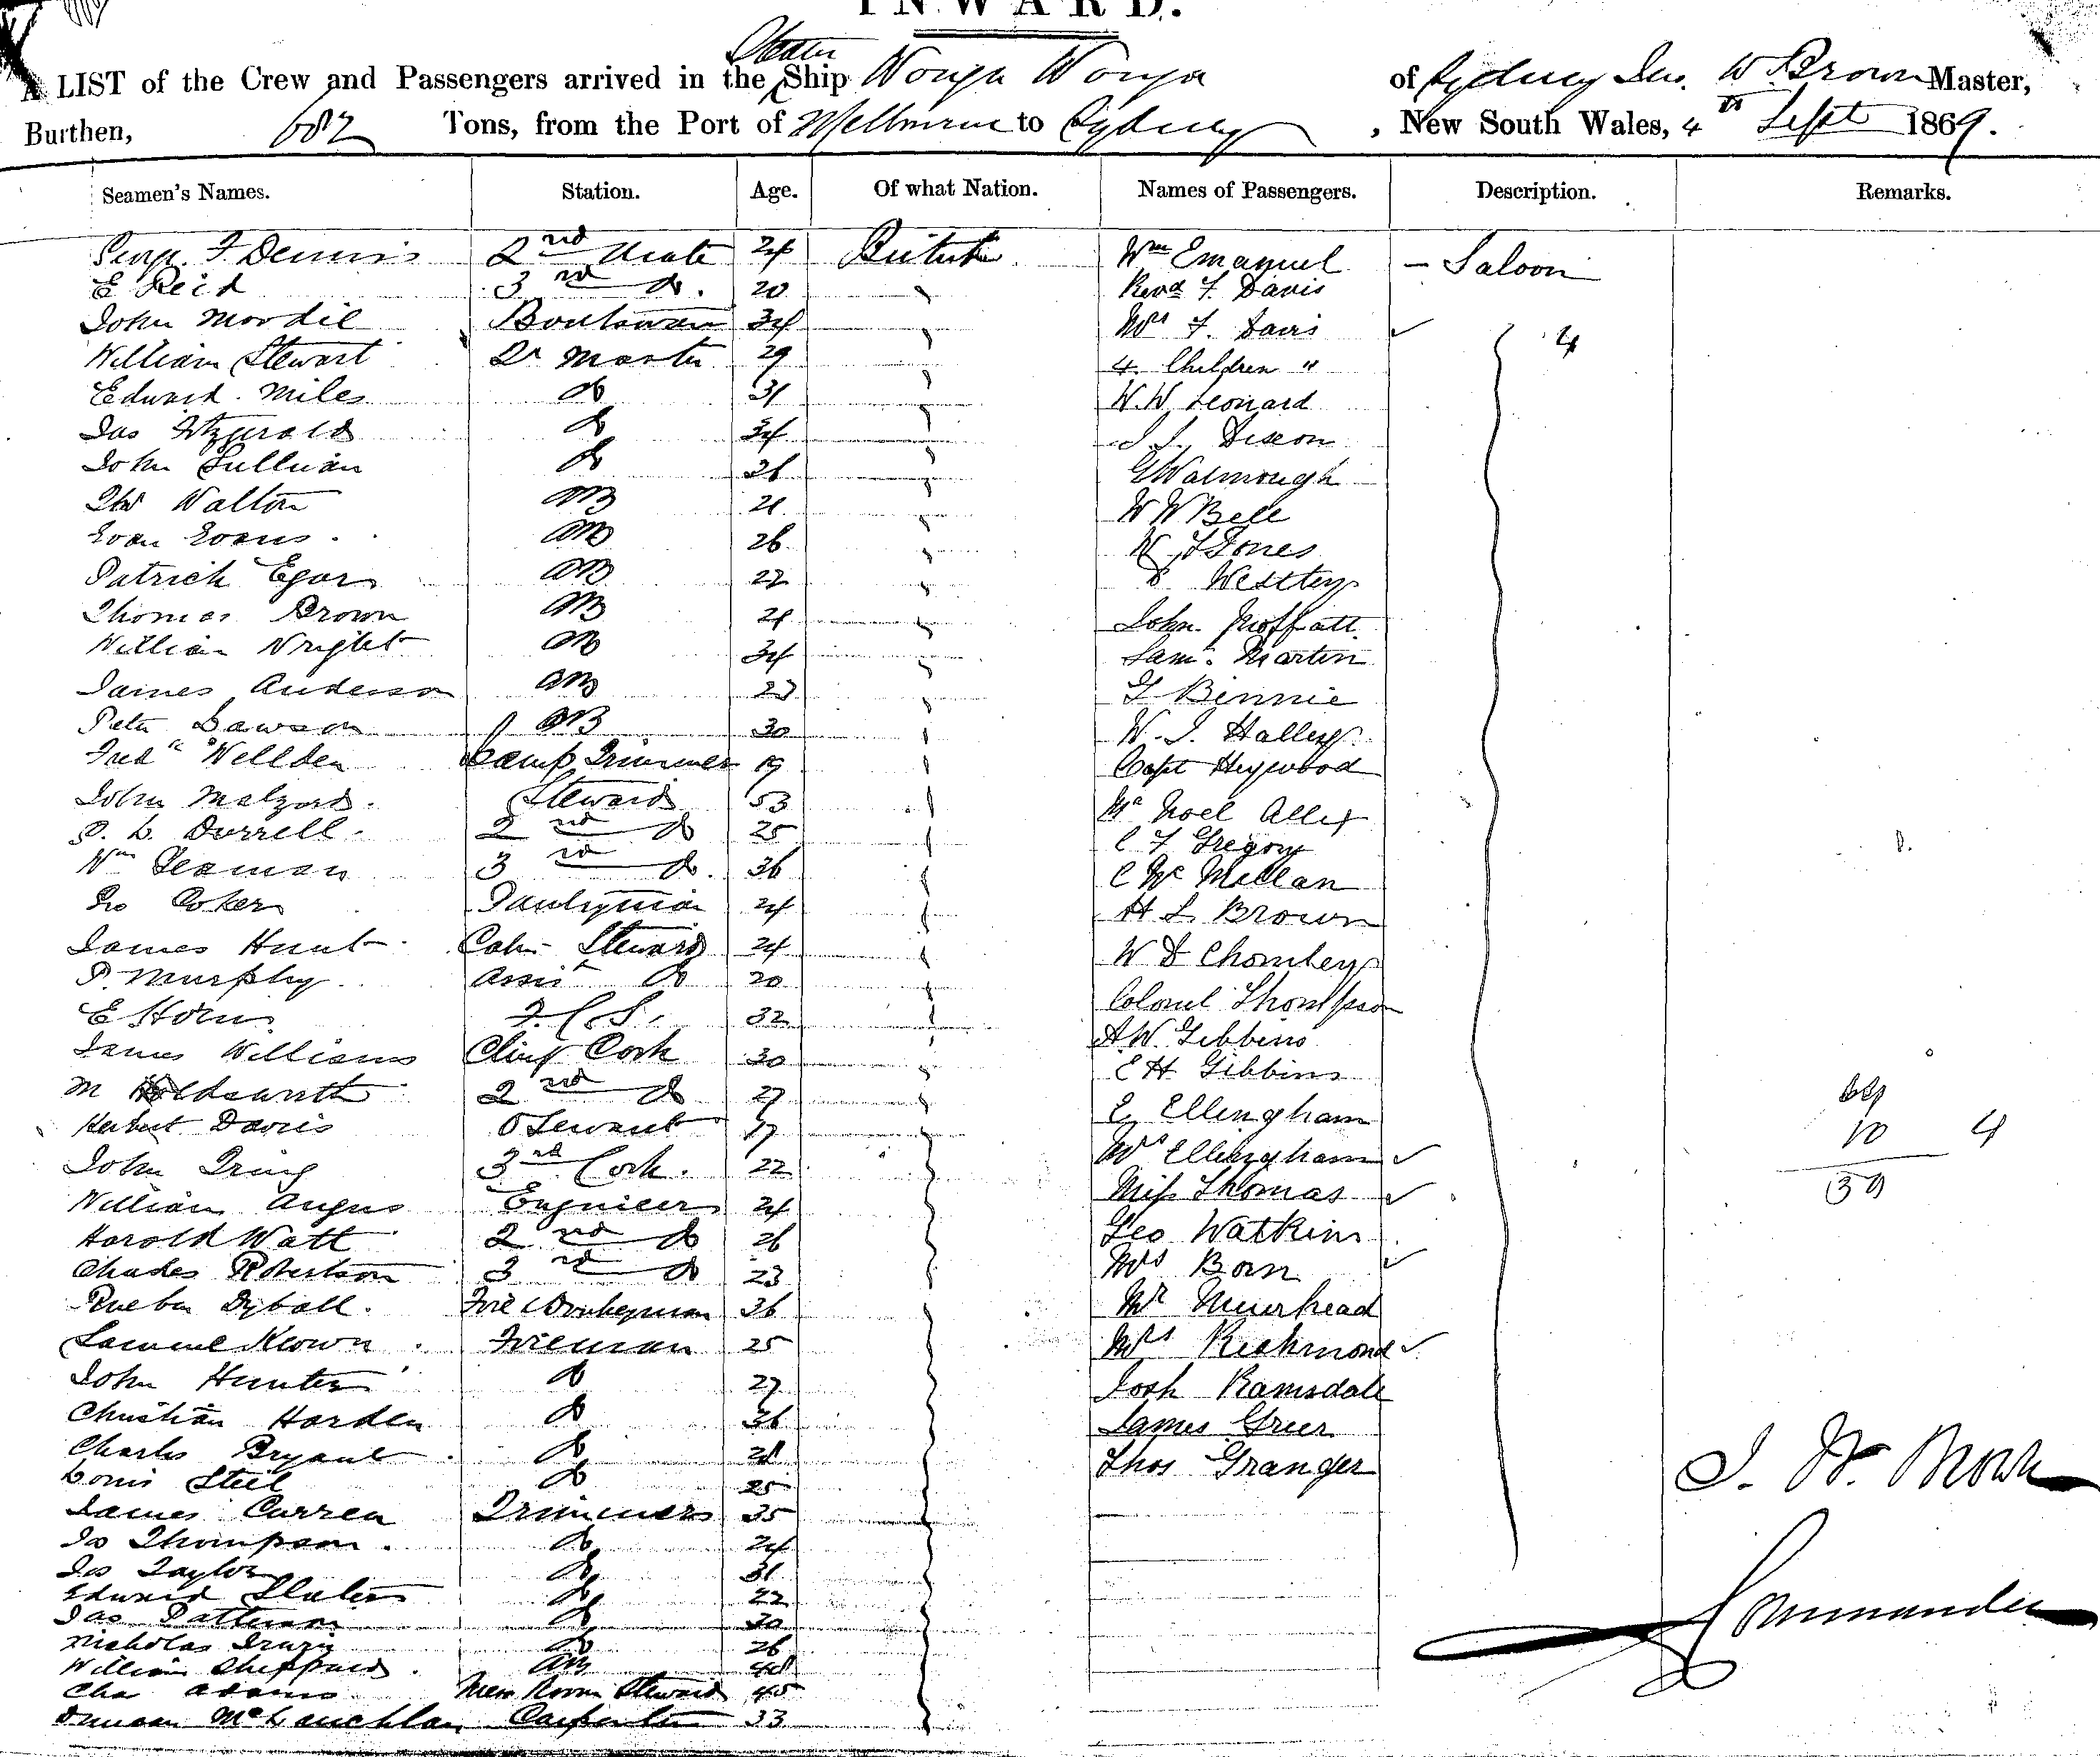 INWARD.
A LIST of the Crew and Passengers arrived in the Steamer Ship Wonga Wonga of Sydney Jno. W. Brown Master,
Burthen, 682 Tons, from the Port of Melbourne to Sydney, New South Wales, 4th Sept 1869.
Seamen's Names. Station. Age. Of what Nation. Names of Passengers. Description. Remarks.
F. Dennis 2nd Mate 24 British Wm Emanuel - Saloon
E Reid 3rd do. 20 Revd F. Davis
John Mordie Boatswain 34 Mrs F. Davis 4
William Stewart Qr Master 29 4 Children "
Edward Miles do 31 W. W Leonard
Jas Fitzgerald do 34 Dixon
John Sullivan do 26 G Walmough
Walton AB 21 W W Bell
Evan Evans AB 26 W J Jones
Patrick Egan AB 22 Westley
Thomas Brown AB 24 John Moffatt
William Wright AB 34 Saml. Martin
James Anderson AB 23 Binnie
Peter Dawson AB 30 W. J. Halley
Fredk Wellden Lamp Trimmer 19 Capt Heywood
John Malzard Steward 53 Mr Noel
Durrell 2nd do 25 C F Gregory
Wm Seaman 3rd do. 36 C Mc Millan
Coker Pantryman 24 H L Brown
James Hunt Cabin Steward 24 W D Chomley
P. Murphy Assist do 20 Colonel Thompson
E Horn F. C. S. 32 A. W. Gibbins
James Williams Chief Cook 30 E H Gibbins
M Holdsworth 2nd do 27 E Ellingham
Herbert Davis Servant 17 Mrs Ellingham 10 4
John Tring 3rd Cook. 22 Miss Thomas 39
William Angus Engineer 24 Geo Watkins
Harold Watt 2nd do 26 Mrs Born
Charles Robertson 3rd do 23 Mr Muirhead
Rueben Dyball Fore Donkeyman 36 Mrs Richmond
Samuel Keown Fireman 25 Josh Ramsdale
John Hunter do 27 James Greer
Christian Harden do 36 Thos Granger
Charles Bryant do 28 J. W. Brown
Louis Steil do 25
James Curren Trimmers 35
Jas Thompson do 24
Jas Taylor do 31
Edward Slater do 22 Commander
Jas Patterson do 30
Nicholas do 26
William Sheppard AB 48
Chas Adams Mess Room Steward 45
Duncan McLauchlan Carpenter 33